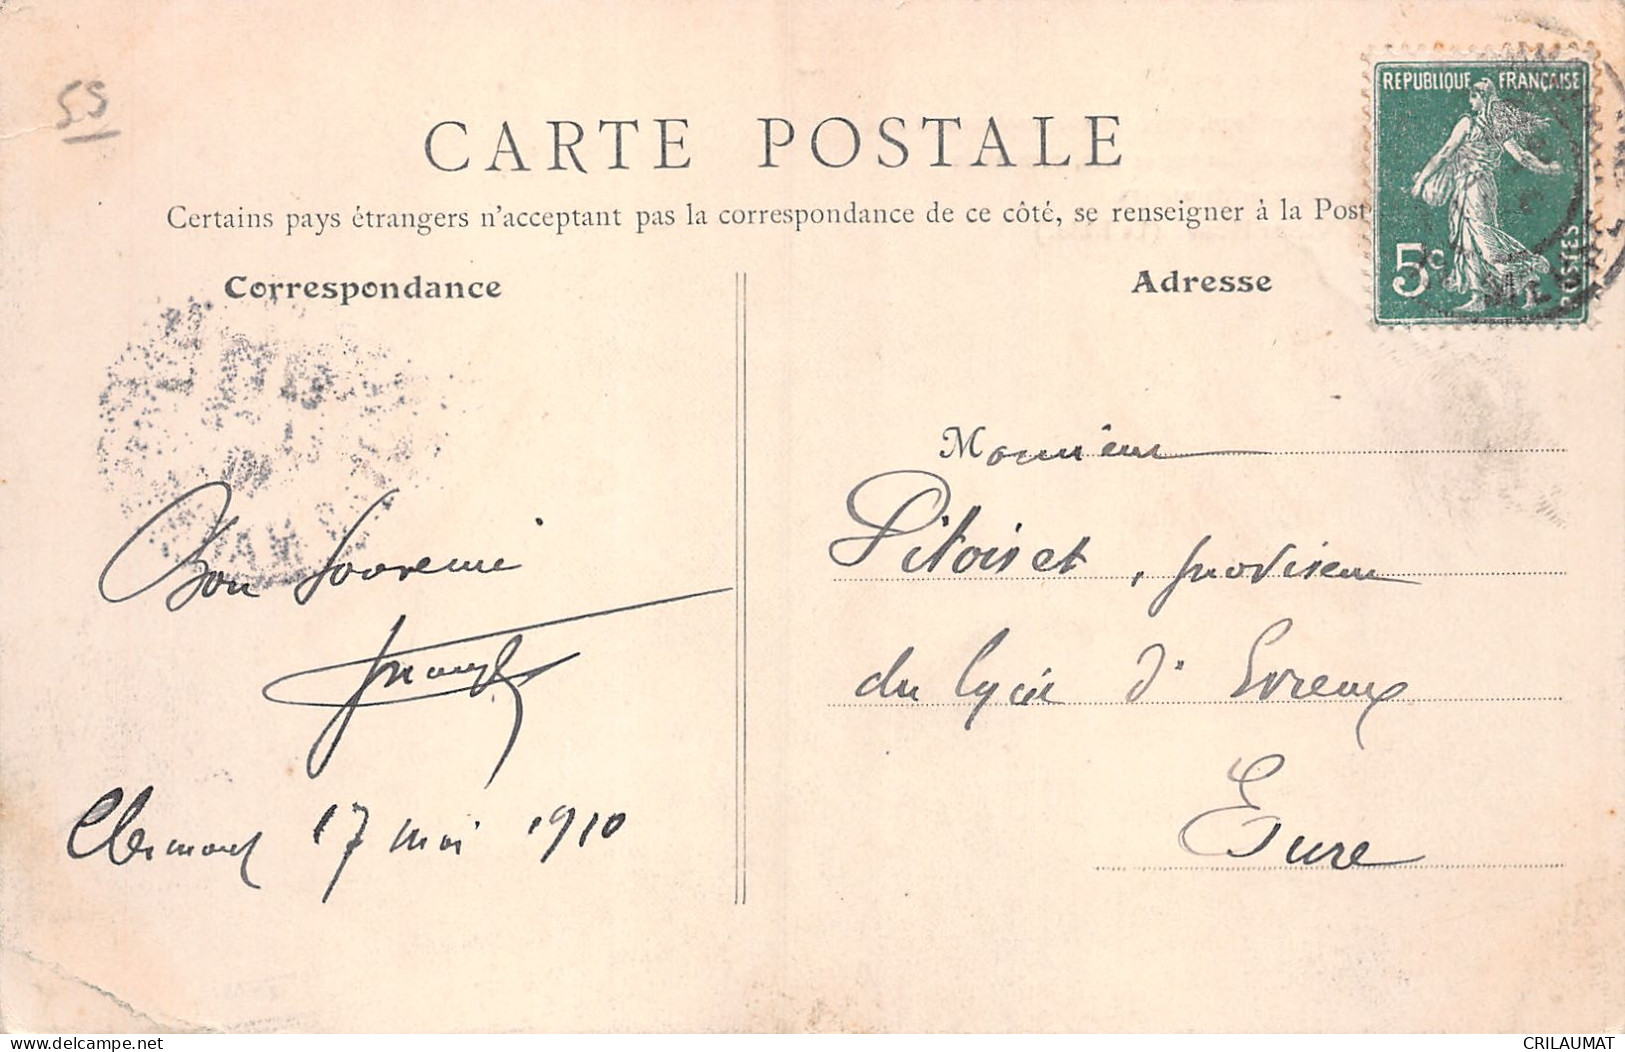 55
CARTE POSTALE
Certains pays étrangers n'acceptant pas la correspondance de ce côté, se renseigner à la Post
REPUBLIQUE FRANÇAISE
5c
POSTES
Correspondance
Adresse
Monsieur
Pitoiset, proviseur
du lycée d'Evreux
Eure
Bon Souvenir
Clermont 17 mai 1910
www.delcampe.net
CRILAUMAT